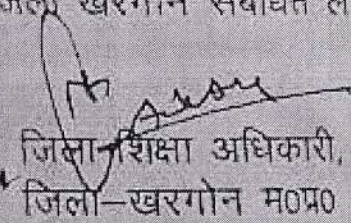 खरगोन संबंधित
जिला शिक्षा अधिकारी,
जिला–खरगोन म0प्र0